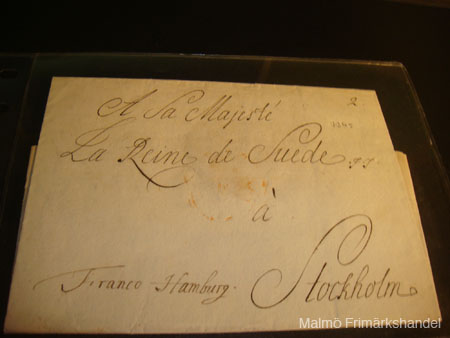 2
A Sa Majesté
La Reine de Suede
à
Franco Hamburg.
Stockholm
Malmö Frimärkshandel